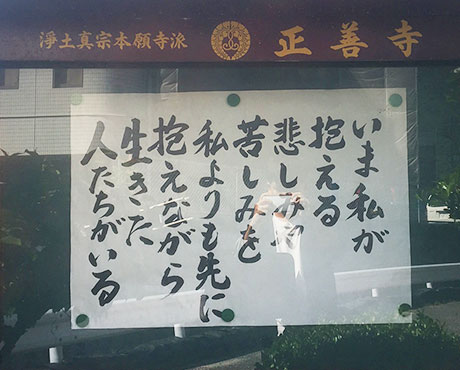 浄土真宗本願寺派 正善寺
いま私が
抱える
悲しみや
苦しみを
私よりも先に
抱えながら
生きた
人たちがいる